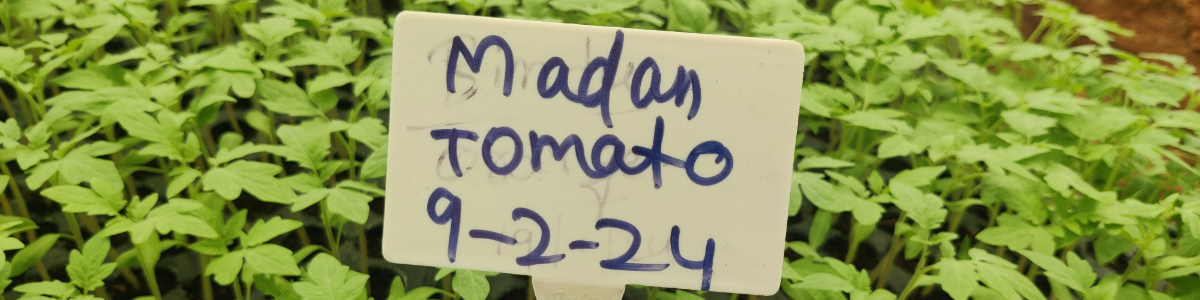 Madan
Tomato
9-2-24